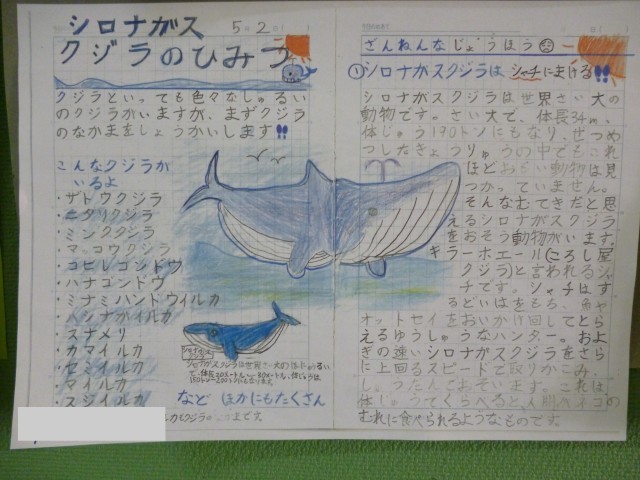 シロナガス
5月2
クジラのひみつ
クジラといっても色々なしゅるい
のクジラがいますが、まずクジラ
のなかまをしょうかいします!!
こんなクジラが
いるよ
・ザトウクジラ
・ニタリクジラ
・ミンククジラ
・マッコウクジラ
・コビレゴンドウ
・ハナゴンドウ
・ミナミハンドウイルカ
・ハシナガイルカ
・スナメリ
・カマイルカ
・セミイルカ
・マイルカ
・スジイルカ
など ほかにもたくさん
シロナガスクジラは世界さい大のほにゅうるい
ざんねんなじょうほう
①シロナガスクジラは シャチにまける!!
シロナガスクジラは世界さい大の
動物です。さい大で、体長34m、
体じゅう190トンにもなり、ぜつめ
つしたきょうりゅうの中でもこれ
ほど 動物は見
つかっていません。
そんなむてきだと思
えるシロナガスクジラ
をおそう動物がいます。
キラーホエール(ころし屋
クジラ)と言われるシャ
チです。シャチはす
るどいはをもち、魚や
オットセイをおいかけ回してとら
えるゆうしゅうなハンター。およ
ぎの速いシロナガスクジラをさら
に上回るスピードで取りかこみ、
おそいます。これは、
体 くらべると、人間が
むれに食べられるようなものです。